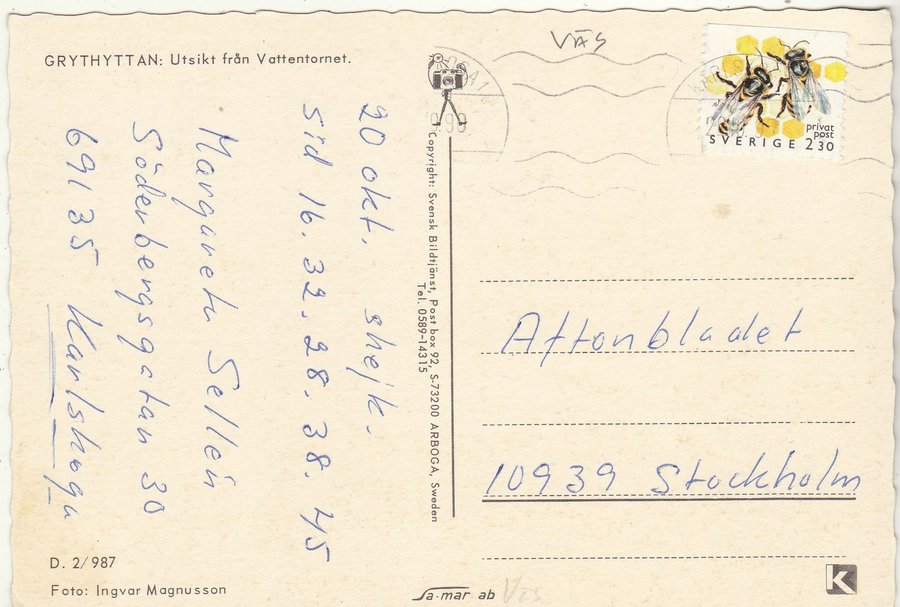 GRYTHYTTAN: Utsikt från Vattentornet.
VÄS
privat
post
SVERIGE 2.30
20 okt. shejk.
Sid 16. 32. 28. 38. 45
Margareta Sellén
Söderbergsgatan 30
691 35 Karlskoga
Copyright: Svensk Bildtjänst, Post box 92, S-73200 ARBOGA, Sweden
Tel. 0589-14315
Aftonbladet
10939 Stockholm
D. 2/987
Foto: Ingvar Magnusson
Sa-mar ab
K